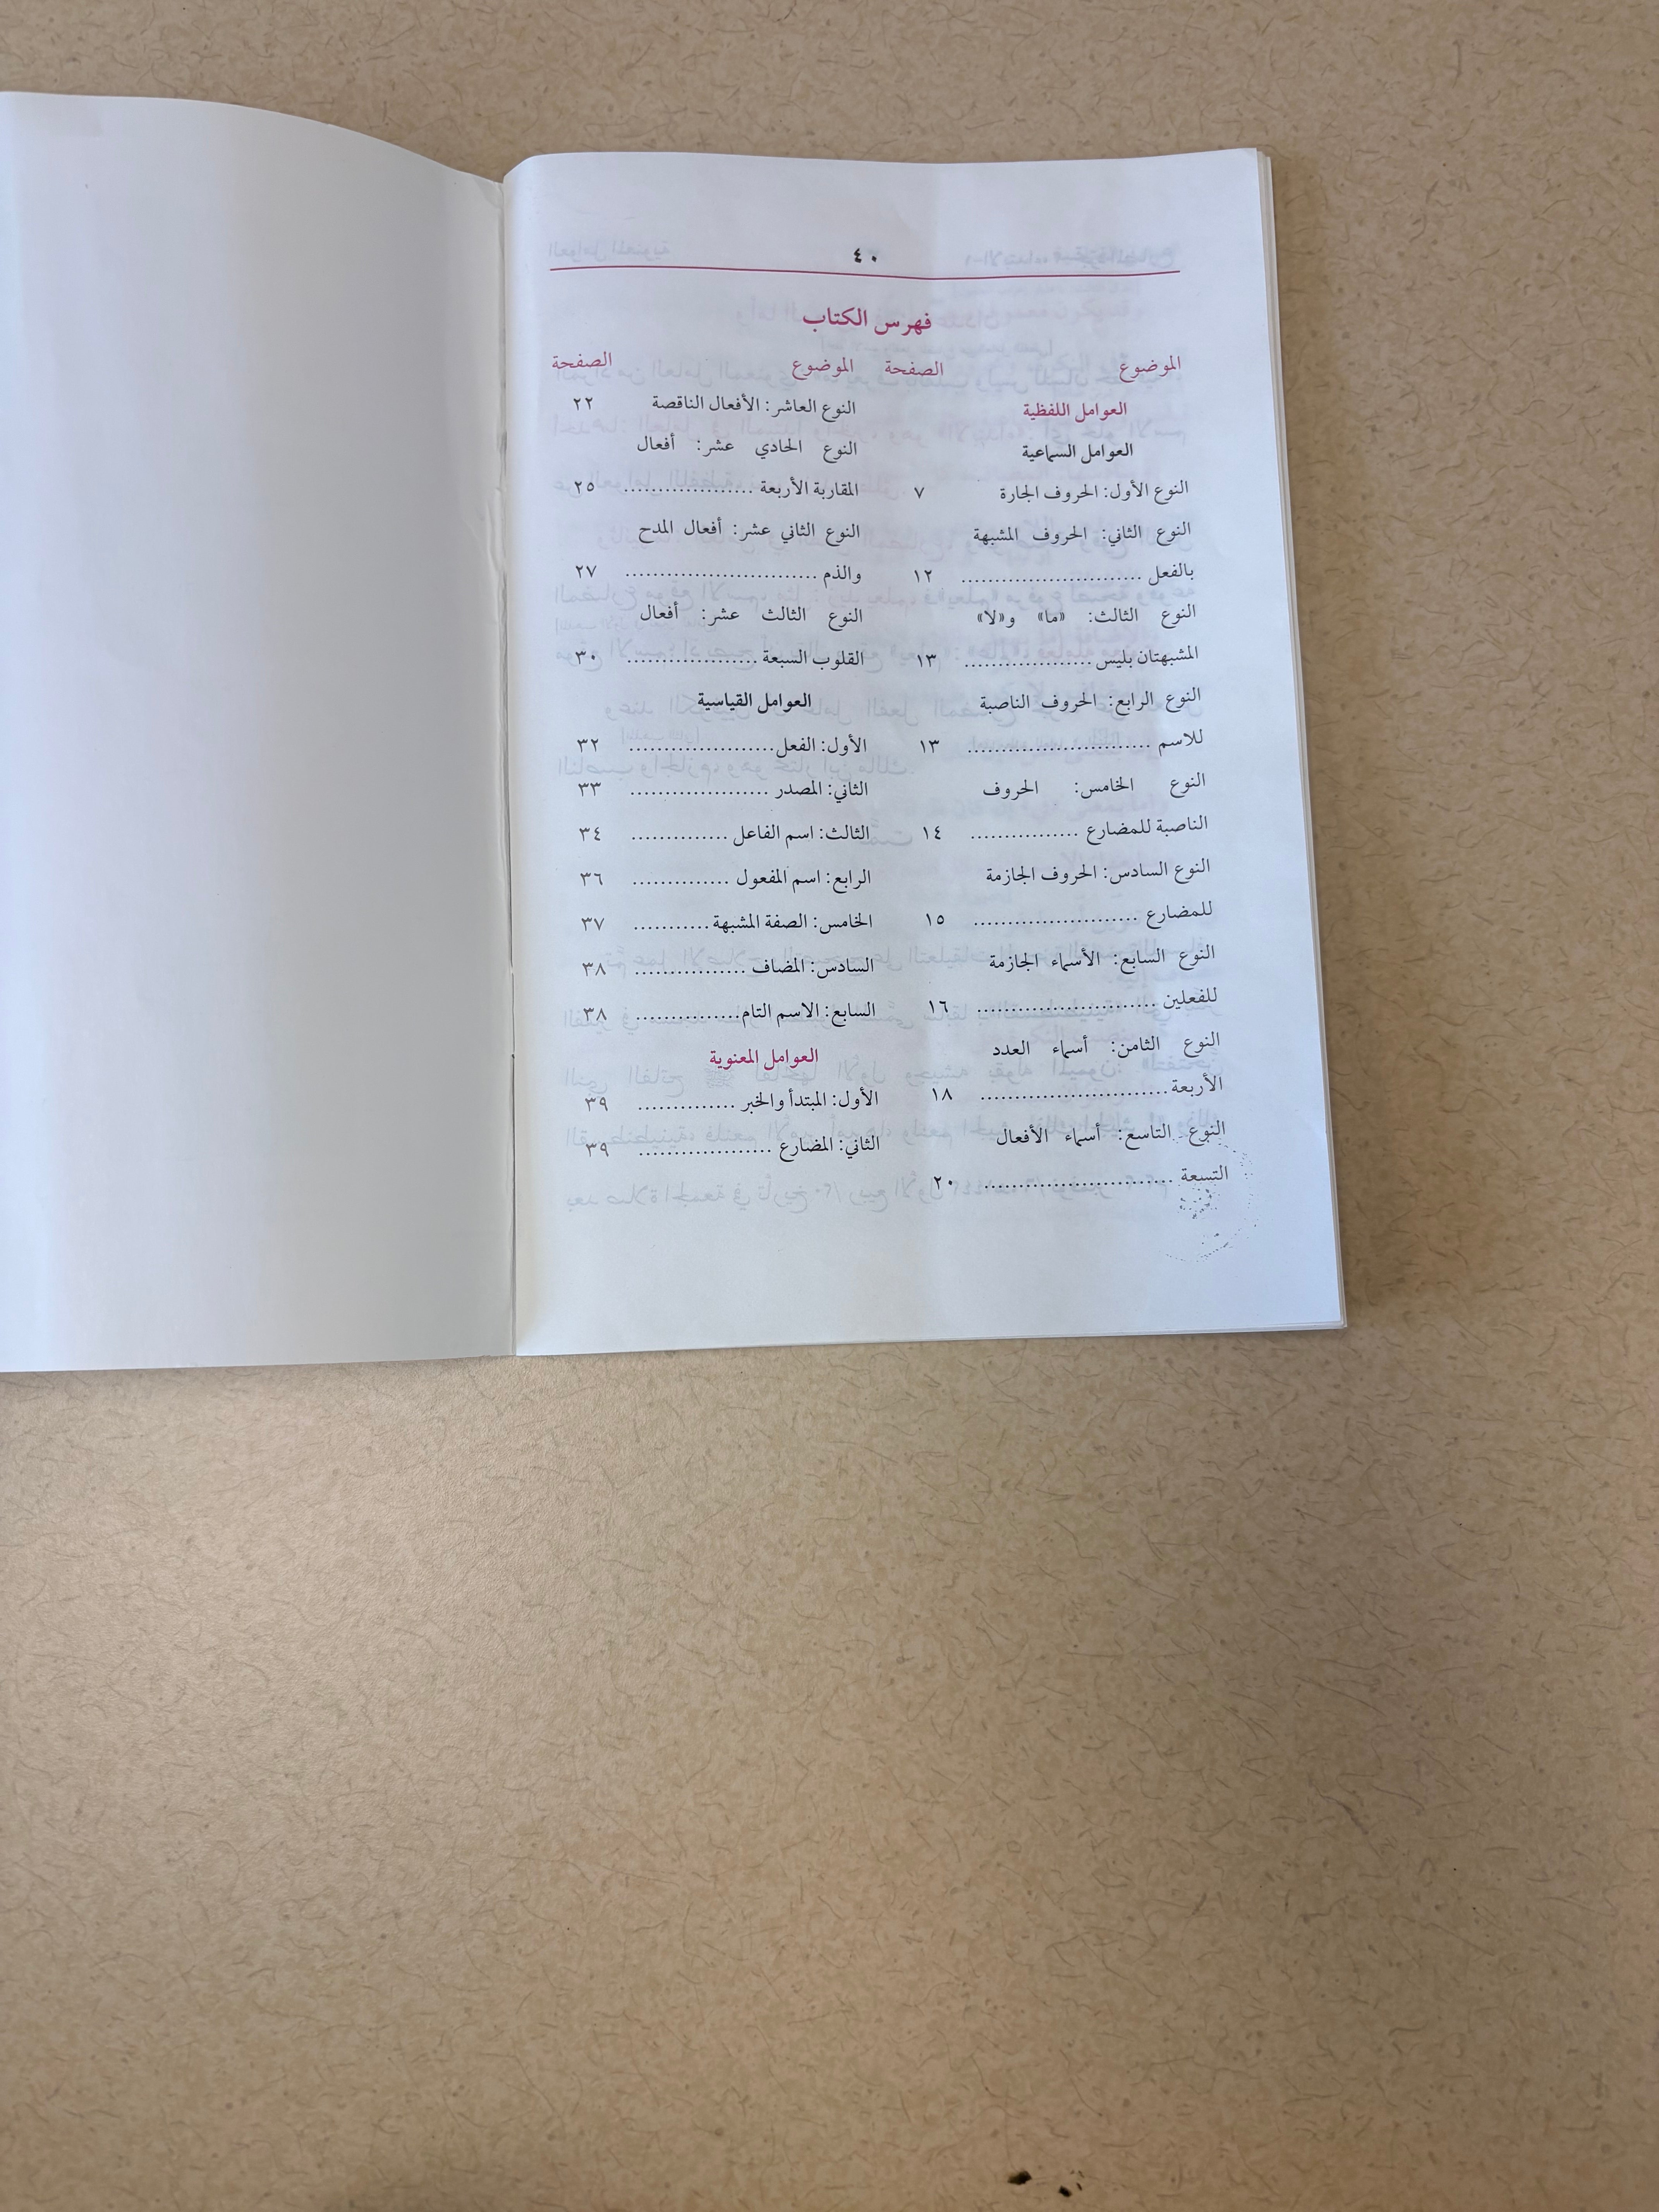 ٤٠
فهرس الكتاب
الموضوع الصفحة
العوامل اللفظية
العوامل السماعية
النوع الأول: الحروف الجارة ٧
النوع الثاني: الحروف المشبهة
بالفعل ........................... ١٢
النوع الثالث: «ما» و«لا»
المشبهتان بليس ................... ١٣
النوع الرابع: الحروف الناصبة
للاسم ........................... ١٣
النوع الخامس: الحروف
الناصبة للمضارع ................ ١٤
النوع السادس: الحروف الجازمة
للمضارع ........................ ١٥
النوع السابع: الأسماء الجازمة
للفعلين .......................... ١٦
النوع الثامن: أسماء العدد
الأربعة ........................... ١٨
النوع التاسع: أسماء الأفعال
التسعة ........................... ٢٠
الموضوع الصفحة
النوع العاشر: الأفعال الناقصة ٢٢
النوع الحادي عشر: أفعال
المقاربة الأربعة ................... ٢٥
النوع الثاني عشر: أفعال المدح
والذم ............................ ٢٧
النوع الثالث عشر: أفعال
القلوب السبعة ................... ٣٠
العوامل القياسية
الأول: الفعل ..................... ٣٢
الثاني: المصدر .................... ٣٣
الثالث: اسم الفاعل .............. ٣٤
الرابع: اسم المفعول .............. ٣٦
الخامس: الصفة المشبهة ........... ٣٧
السادس: المضاف ................ ٣٨
السابع: الاسم التام ............... ٣٨
العوامل المعنوية
الأول: المبتدأ والخبر .............. ٣٩
الثاني: المضارع ................... ٣٩